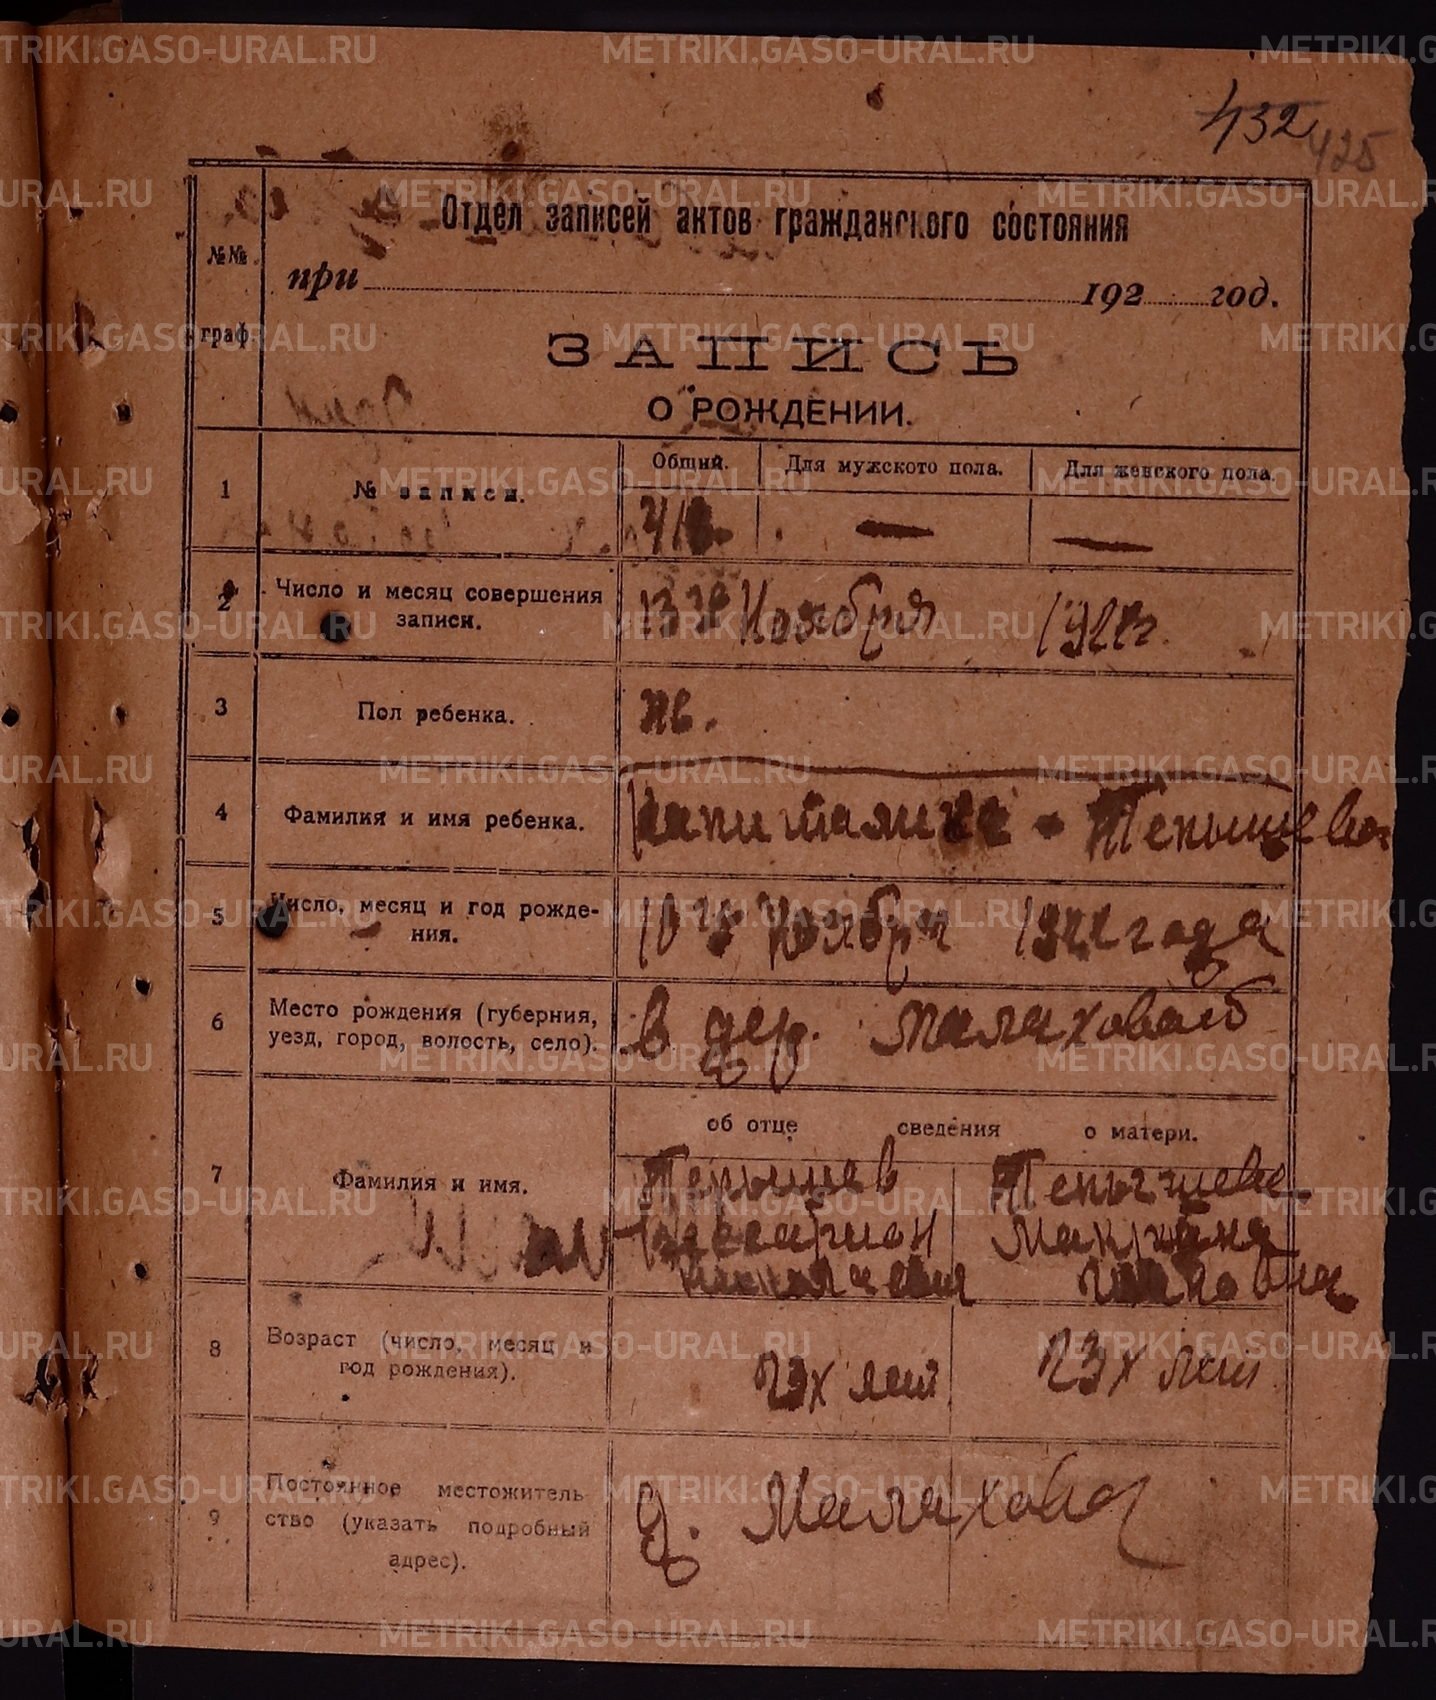 432
425
Отдел записей актов гражданского состояния
№№ граф.
при 192 год.
ЗАПИСЬ
О РОЖДЕНИИ.
Общий. Для мужского пола. Для женского пола.
1 № записи.
2 Число и месяц совершения записи. 13го Ноября 1922г.
3 Пол ребенка. же.
4 Фамилия и имя ребенка. Капиталина Тепышева
5 Число, месяц и год рождения. 10го Ноября 1922 года
6 Место рождения (губерния, уезд, город, волость, село). в дер. Малаховой
об отце сведения о матери.
7 Фамилия и имя. Тепышев Тепышева
Ивановна
8 Возраст (число, месяц и год рождения). 23х лет 23х лет
9 Постоянное местожительство (указать подробный адрес). д. Малахова
METRIKI.GASO-URAL.RU